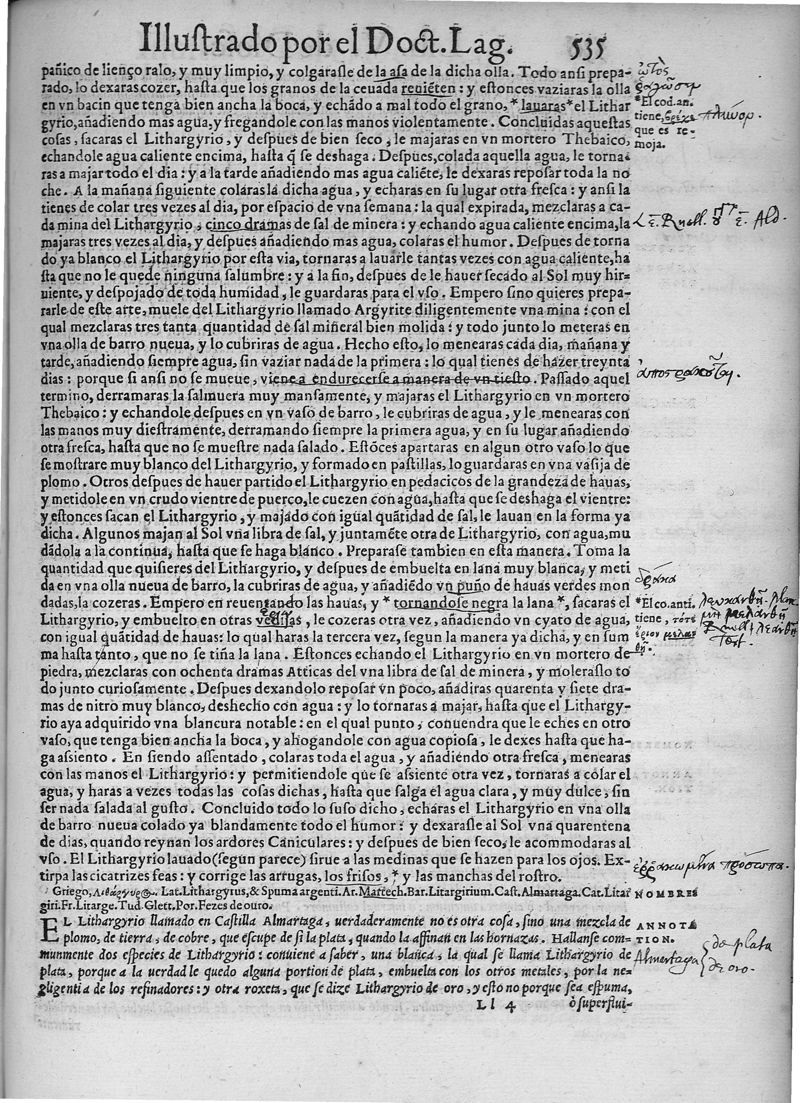 Illustrado por el Doct. Lag. 535
pañico de lienço ralo, y muy limpio, y colgarasle de la asa de la dicha olla. Todo ansi prepa-
rado, lo dexaras cozer, hasta que los granos de la ceuada reuiẽten: y estonces vaziaras la olla
en vn bacin que tenga bien ancha la boca, y echãdo a mal todo el grano, * lauaras * el Lithar
gyrio, añadiendo mas agua, y fregandole con las manos violentamente. Concluidas aquestas
cosas, sacaras el Lithargyrio, y despues de bien seco, le majaras en vn mortero Thebaico,
echandole agua caliente encima, hasta q̃ se deshaga. Despues, colada aquella agua, le torna-
ras a majar todo el dia: y a la tarde añadiendo mas agua caliẽte, le dexaras reposar toda la no
che. A la mañana siguiente colaras la dicha agua, y echaras en su lugar otra fresca: y ansi la
tienes de colar tres vezes al dia, por espacio de vna semana: la qual expirada, mezclaras a ca-
da mina del Lithargyrio, cinco dramas de sal de minera: y echando agua caliente encima, la
majaras tres vezes al dia, y despues añadiendo mas agua, colaras el humor. Despues de torna
do ya blanco el Lithargyrio por esta via, tornaras a lauarle tantas vezes con agua caliente, ha
sta que no le quede ninguna salumbre: y a la fin, despues de le hauer secado al Sol muy hir-
uiente, y despojado de toda humidad, le guardaras para el vso. Empero sino quieres prepa-
rarle de este arte, muele del Lithargyrio llamado Argyrite diligentemente vna mina: con el
qual mezclaras tres tanta quantidad de sal mineral bien molida: y todo junto lo meteras en
vna olla de barro nueua, y lo cubriras de agua. Hecho esto, lo menearas cada dia, mañana y
tarde, añadiendo siempre agua, sin vaziar nada de la primera: lo qual tienes de hazer treynta
dias: porque si ansi no se mueue, viene a endurecerse a manera de vn tiesto. Passado aquel
termino, derramaras la salmuera muy mansamente, y majaras el Lithargyrio en vn mortero
Thebaico: y echandole despues en vn vaso de barro, le cubriras de agua, y le menearas con
las manos muy diestramente, derramando siempre la primera agua, y en su lugar añadiendo
otra fresca, hasta que no se muestre nada salado. Estõces apartaras en algun otro vaso lo que
se mostrare muy blanco del Lithargyrio, y formado en pastillas, lo guardaras en vna vasija de
plomo. Otros despues de hauer partido el Lithargyrio en pedacicos de la grandeza de hauas,
y metidole en vn crudo vientre de puerco, le cuezen con agua, hasta que se deshaga el vientre:
y estonces sacan el Lithargyrio, y majãdo con igual quãtidad de sal, le lauan en la forma ya
dicha. Algunos majan al Sol vna libra de sal, y juntamẽte otra de Lithargyrio, con agua, mu
dãdola a la continua, hasta que se haga blanco. Preparase tambien en esta manera. Toma la
quantidad que quisieres del Lithargyrio, y despues de embuelta en lana muy blanca, y meti
da en vna olla nueua de barro, la cubriras de agua, y añadiẽdo vn puño de hauas verdes mon
dadas, la cozeras. Empero en reuentando las hauas, y * tornandose negra la lana *, sacaras el
Lithargyrio, y embuelto en otras vedijas, le cozeras otra vez, añadiendo vn cyato de agua,
con igual quãtidad de hauas: lo qual haras la tercera vez, segun la manera ya dicha, y en sum
ma hasta tanto, que no se tiña la lana. Estonces echando el Lithargyrio en vn mortero de
piedra, mezclaras con ochenta dramas Atticas del vna libra de sal de minera, y moleraslo to
do junto curiosamente. Despues dexandolo reposar vn poco, añadiras quarenta y siete dra-
mas de nitro muy blanco, deshecho con agua: y lo tornaras a majar, hasta que el Lithargy-
rio aya adquirido vna blancura notable: en el qual punto, conuendra que le eches en otro
vaso, que tenga bien ancha la boca, y ahogandole con agua copiosa, le dexes hasta que ha-
ga assiento. En siendo assentado, colaras toda el agua, y añadiẽdo otra fresca, menearas
con las manos el Lithargyrio: y permitiendole que se assiente otra vez, tornaras a colar el
agua, y haras a vezes todas las cosas dichas, hasta que salga el agua clara, y muy dulce, sin
ser nada salada al gusto. Concluido todo lo suso dicho, echaras el Lithargyrio en vna olla
de barro nueua colado ya blandamente todo el humor: y dexarasle al Sol vna quarentena
de dias, quando reynan los ardores Caniculares: y despues de bien seco, le acommodaras al
vso. El Lithargyrio lauado (segun parece) sirue a las medinas que se hazen para los ojos. Ex-
tirpa las cicatrizes feas: y corrige las arrugas, los frisos, * y las manchas del rostro.
*El cod. an.
tiene,
que es re-
moja.
*El co. anti.
tiene,
Griego, Λιθάργυρος. Lat. Lithargyrus, & Spuma argenti. Ar. Martech. Bar. Litargirium. Cast. Almartaga. Cat. Litar
giri. Fr. Litarge. Tud. Glett, Por. Fezes de ouro.
NOMBRES
EL Lithargyrio llamado en Castilla Almartaga, uerdaderamente no es otra cosa, sino una mezcla de
plomo, de tierra, de cobre, que escupe de si la plata, quando la affinan en las hornazas. Hallanse com-
munmente dos especies de Lithargyrio: conuiene a saber, una blanca, la qual se llama Lithargyrio de
plata, porque a la uerdad le quedo alguna portion de plata, embuelta con los otros metales, por la ne-
gligentia de los refinadores: y otra roxeta, que se dize Lithargyrio de oro, y esto no porque sea espuma,
ANNOTA
TION.
Almartaga
de plata
de oro.
Ll 4
ò superflui-